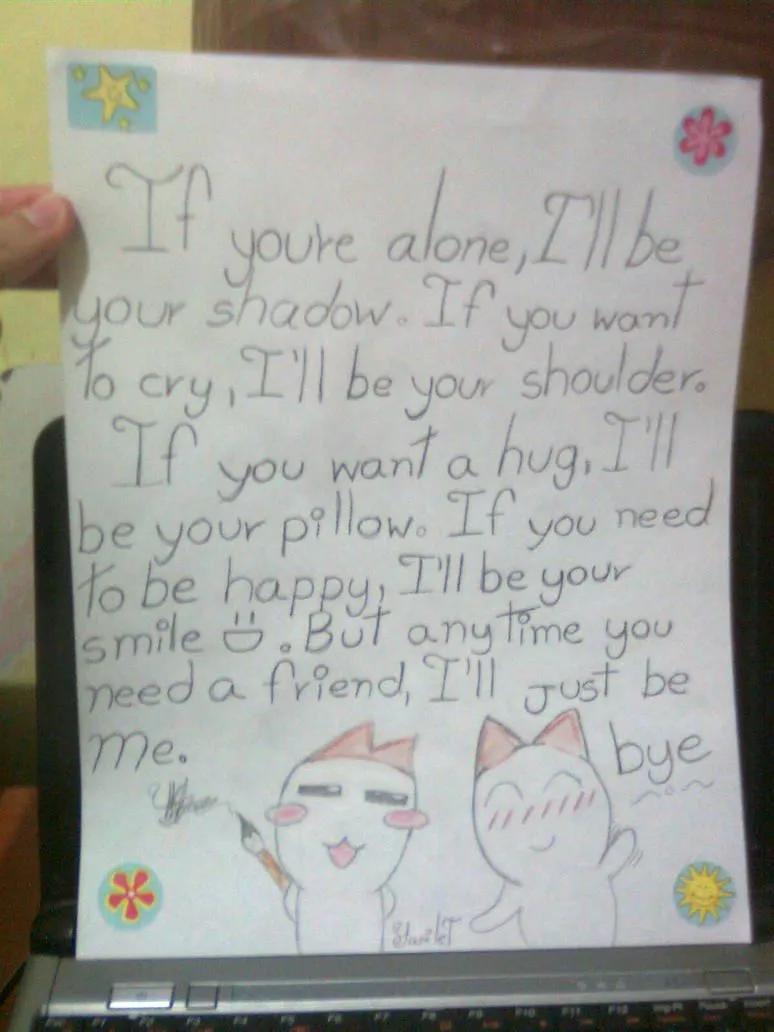 If you're alone, I'll be
your shadow. If you want
to cry, I'll be your shoulder.
If you want a hug, I'll
be your pillow. If you need
to be happy, I'll be your
smile Ü. But anytime you
need a friend, I'll just be
me.
bye
F10 F11 F12